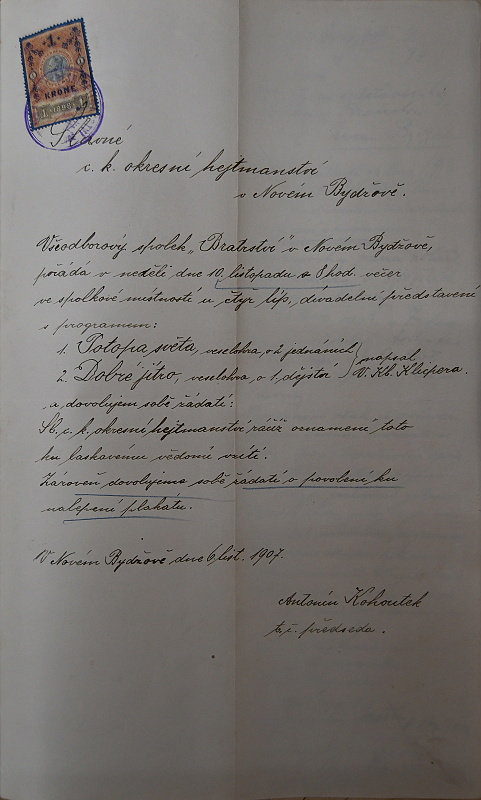 1
KRONE
1 1898 1
Slavné
c. k. okresní hejtmanství
v Novém Bydžově.
Všeodborový spolek „Bratrství" v Novém Bydžově,
pořádá v neděli dne 10. listopadu o 8 hod. večer
ve spolkové místnosti u čtyř lip, divadelní představení
s programem:
1. Potopa světa, veselohra, o 2 jednáních
2. Dobré jitro, veselohra, o 1. dějství
napsal
V. Kl. Klicpera.
a dovolujem sobě žádati:
Sl. c. k. okresní hejtmanství račiž oznámení toto
ku laskavému vědomí vzíti.
Zároveň dovolujeme sobě žádati o povolení ku
nalepení plakátu.
V Novém Bydžově dne 6 list. 1907.
Antonín Kohoutek
t. č. předseda.